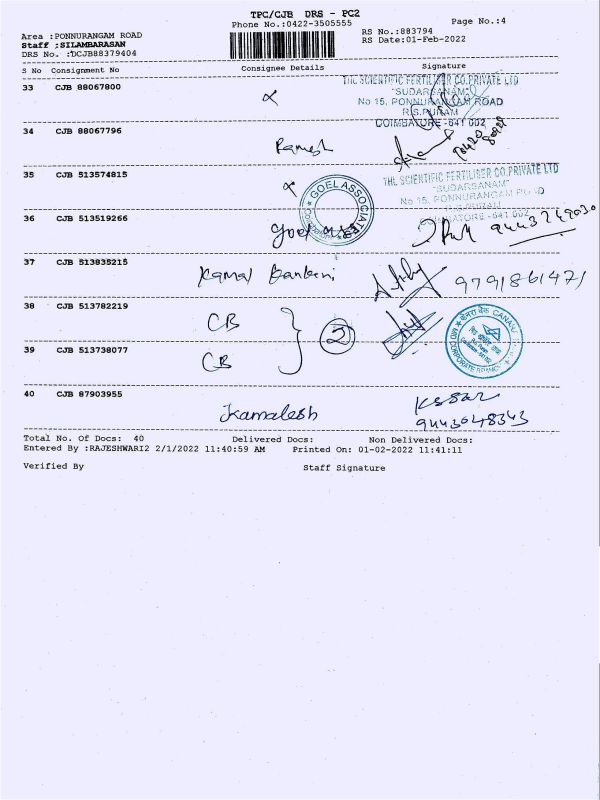 TPC/CJB DRS - PC2
Phone No.:0422-3505555
Page No.:4
Area :PONNURANGAM ROAD
Staff :SILAMBARASAN
DRS No. :DCJB88379404
RS No.:883794
RS Date:01-Feb-2022
S No Consignment No Consignee Details Signature
33 CJB 88067800
THE SCIENTIFIC FERTILISER CO.PRIVATE LTD
"SUDARSANAM"
No 15, PONNURANGAM ROAD
R.S.PURAM
COIMBATORE -641 002
34 CJB 88067796 Ramesh
35 CJB 513574815
GOEL ASSOCIATES
THE SCIENTIFIC FERTILISER CO.PRIVATE LTD
"SUDARSANAM"
No 15, PONNURANGAM
COIMBATORE -641 002
36 CJB 513519266 Goel
37 CJB 513835215 Kamal 9791861471
38 CJB 513782219 CB
2
39 CJB 513738077 CB
केनरा बैंक CANARA
MID CORPORATE BRANCH
40 CJB 87903955 Kamalesh
9443048343
Total No. Of Docs: 40 Delivered Docs: Non Delivered Docs:
Entered By :RAJESHWARI2 2/1/2022 11:40:59 AM Printed On: 01-02-2022 11:41:11
Verified By Staff Signature